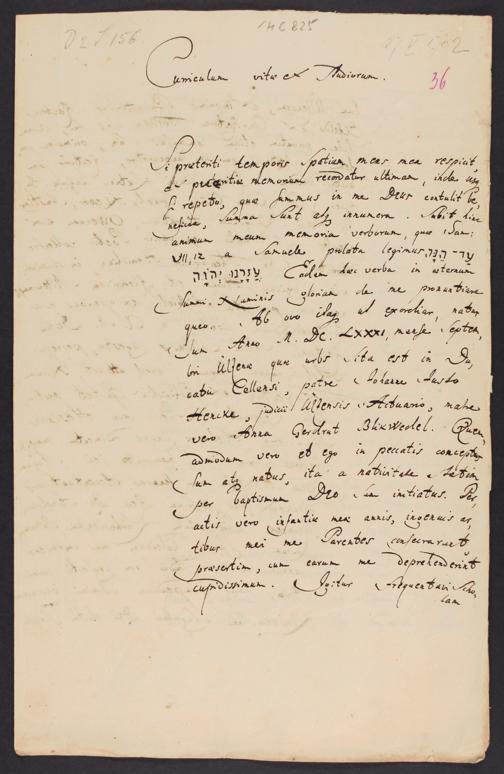 D 2 I 156
HC 825
36
Curriculum vitæ et Studiorum.
Si præteriti temporis spatium mens mea respicit
et pueritiæ memoriam recordatur ultimam, inde usq
si repeto, quæ summus in me Deus contulit be,
neficia, summa sunt atq innumera. Subit hinc
animum meum memoria verborum, quæ 1 Sam:
VII, 12 a Samuele prolata legimus, עַד־הֵנָּה
עֲזָרָנוּ יְהֹוָה Eadem hæc verba in æternam
Summi Numinis gloriam de me pronuntiare
queo. Ab ovo itaq ut exordiar, natus
sum Anno M. DC. LXXXI, mense Septem,
bri Ülsenæ quæ urbs sita est in Du,
catu Cellensi, patre Johanne Justo
Hencke, judicii Ülsensis Actuario, matre
vero Anna Gerdrut Quem,
admodum vero et ego in peccatis conceptus
sum atq natus, ita a nativitate statim
per baptismum DEO sum initiatus. Per,
actis vero infantiæ meæ annis, ingenuis ar,
tibus mei me Parentes consecrarunt
præsertim, cum earum me deprehenderint
cupidissimum. Igitur frequentavi Scho,
lam